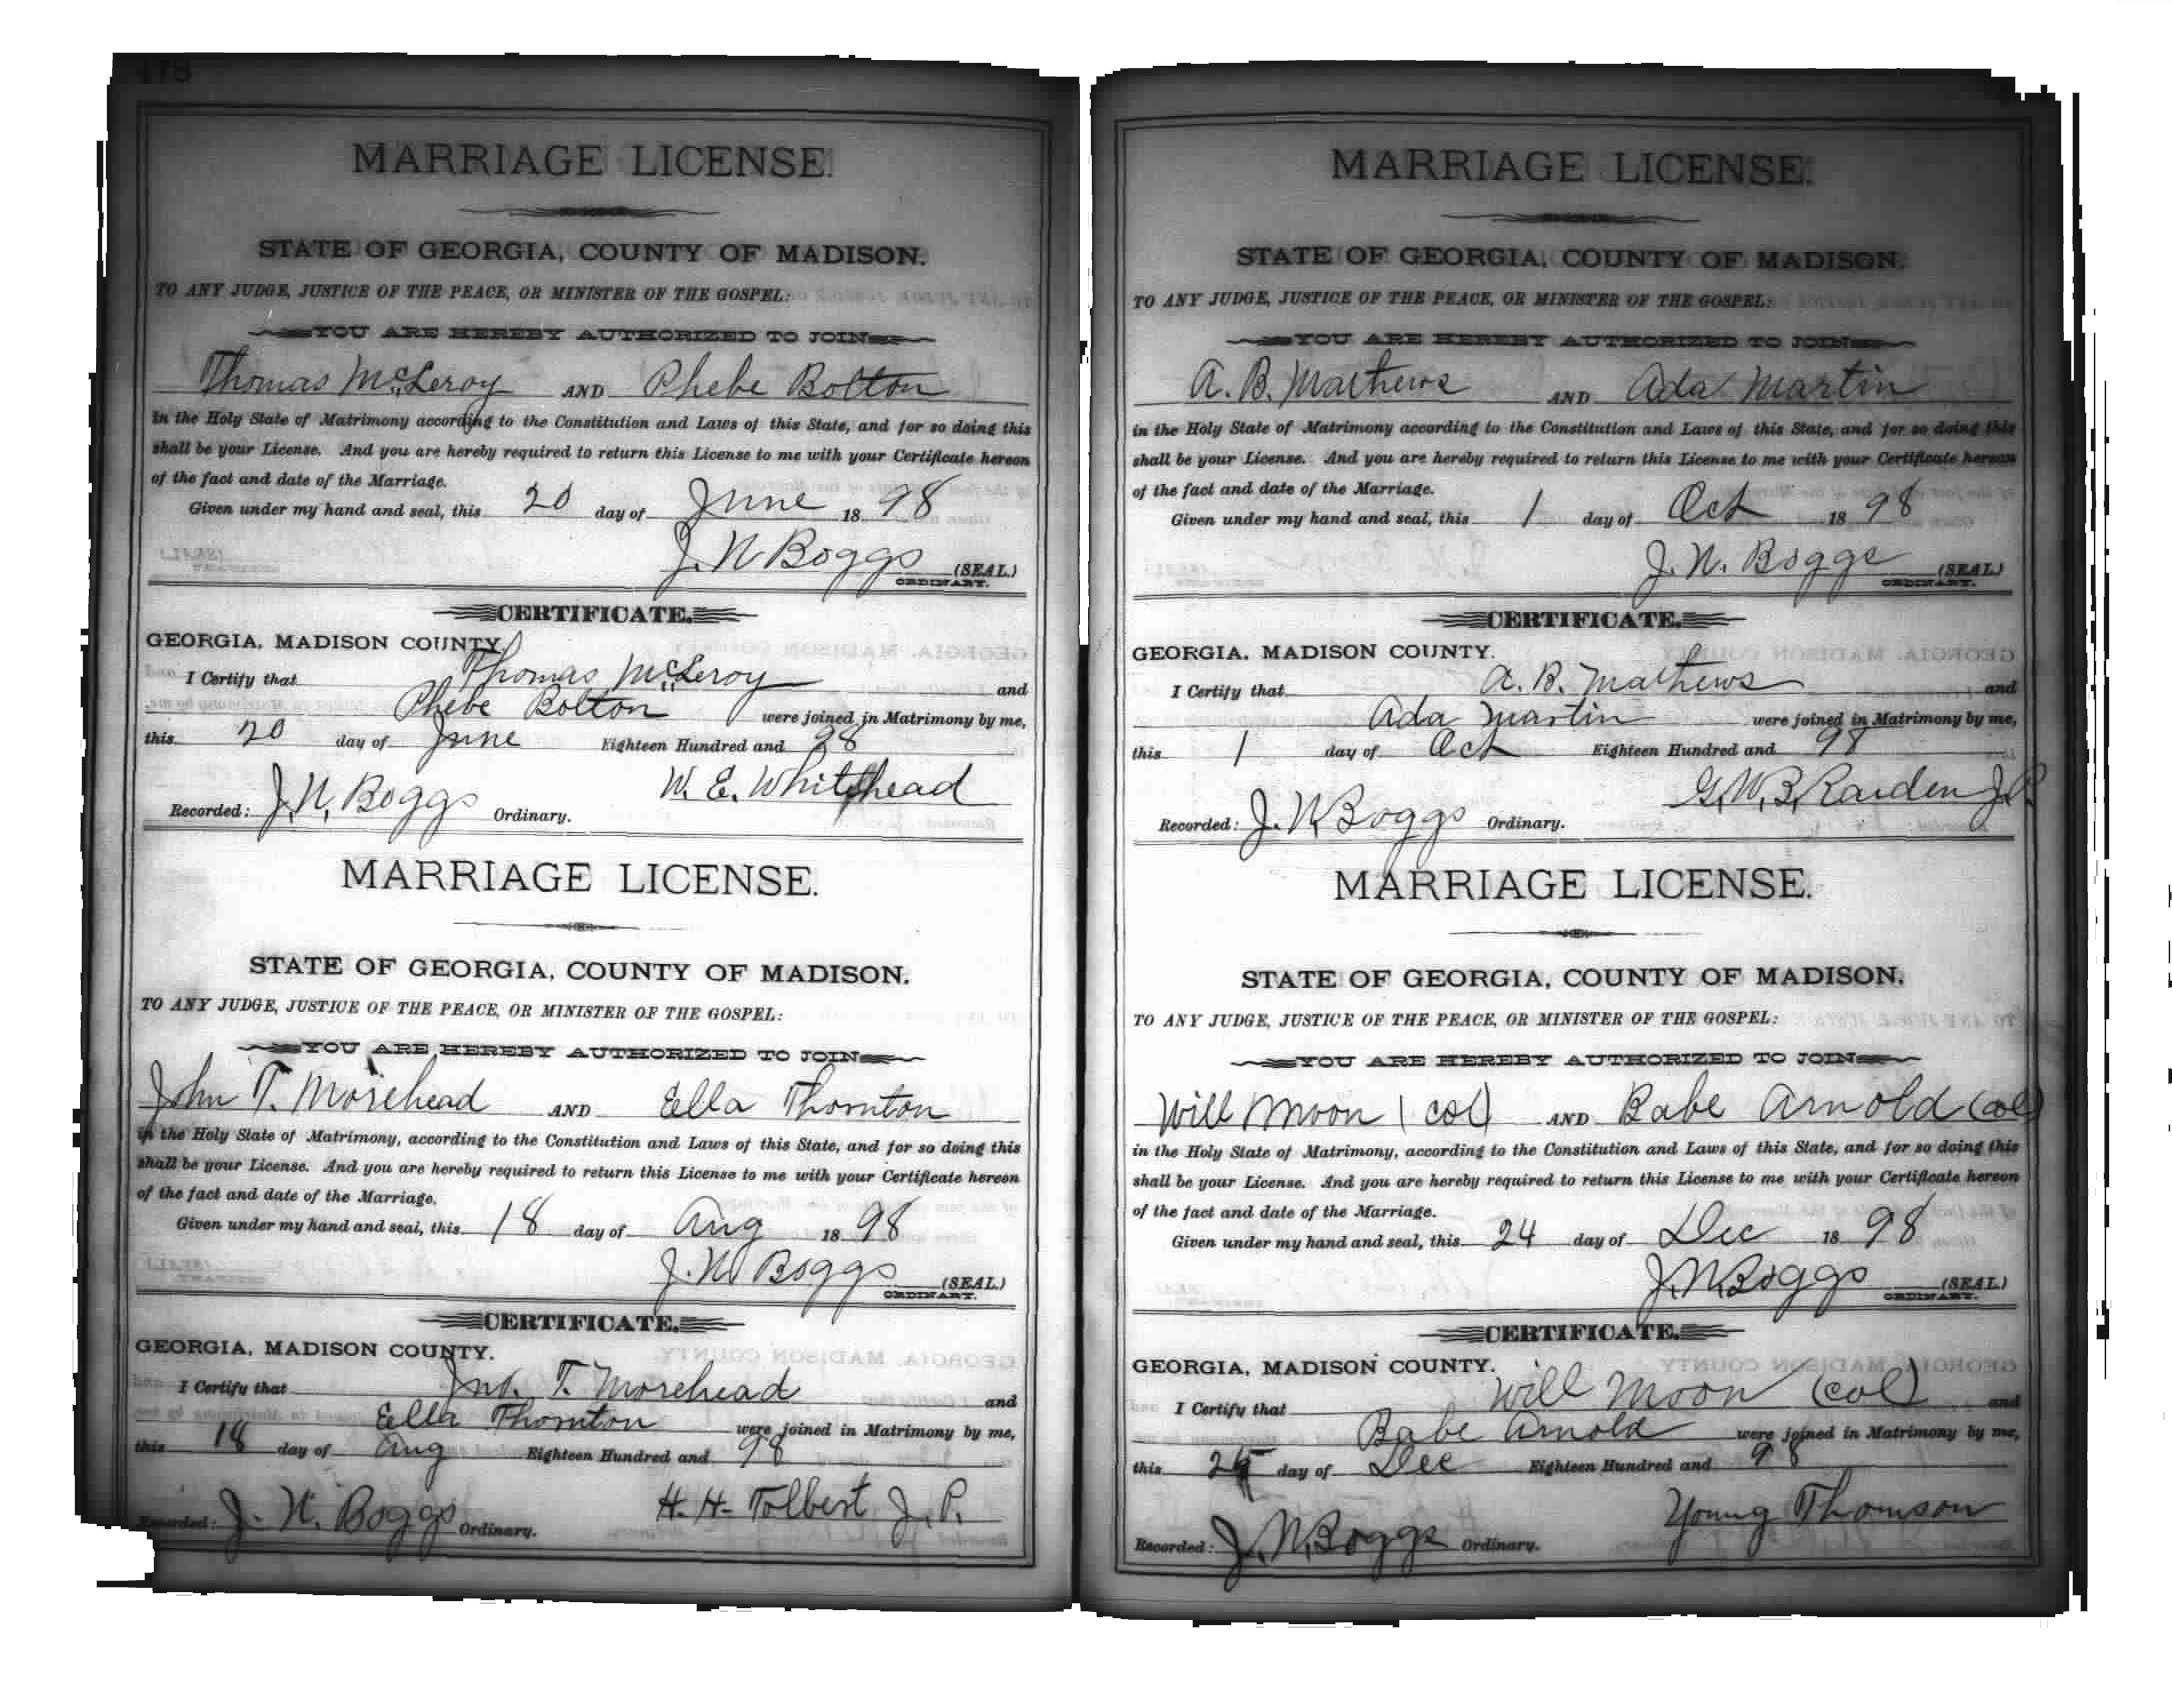 178
MARRIAGE LICENSE.
STATE OF GEORGIA, COUNTY OF MADISON.
TO ANY JUDGE, JUSTICE OF THE PEACE, OR MINISTER OF THE GOSPEL:
YOU ARE HEREBY AUTHORIZED TO JOIN
Thomas McLeroy AND Phebe Bolton
in the Holy State of Matrimony according to the Constitution and Laws of this State, and for so doing this
shall be your License. And you are hereby required to return this License to me with your Certificate hereon
of the fact and date of the Marriage.
Given under my hand and seal, this 20 day of June 1898
J. N Boggs (SEAL)
ORDINARY.
CERTIFICATE.
GEORGIA, MADISON COUNTY.
I Certify that Thomas McLeroy and
Phebe Bolton were joined in Matrimony by me,
this 20 day of June Eighteen Hundred and 98
W. E. Whitehead
Recorded: J. N. Boggs Ordinary.
MARRIAGE LICENSE.
STATE OF GEORGIA, COUNTY OF MADISON.
TO ANY JUDGE, JUSTICE OF THE PEACE, OR MINISTER OF THE GOSPEL:
YOU ARE HEREBY AUTHORIZED TO JOIN
John T. Morehead AND Ella Thornton
in the Holy State of Matrimony, according to the Constitution and Laws of this State, and for so doing this
shall be your License. And you are hereby required to return this License to me with your Certificate hereon
of the fact and date of the Marriage.
Given under my hand and seal, this 18 day of Aug 1898
J. N. Boggs (SEAL)
ORDINARY.
CERTIFICATE.
GEORGIA, MADISON COUNTY.
I Certify that Jno. T. Morehead and
Ella Thornton were joined in Matrimony by me,
this 18 day of Aug Eighteen Hundred and 98
H. H. Tolbert J. P.
Recorded: J. N. Boggs Ordinary.
MARRIAGE LICENSE.
STATE OF GEORGIA, COUNTY OF MADISON.
TO ANY JUDGE, JUSTICE OF THE PEACE, OR MINISTER OF THE GOSPEL:
YOU ARE HEREBY AUTHORIZED TO JOIN
A. B. Mathews AND Ada Martin
in the Holy State of Matrimony according to the Constitution and Laws of this State, and for so doing this
shall be your License. And you are hereby required to return this License to me with your Certificate hereon
of the fact and date of the Marriage.
Given under my hand and seal, this 1 day of Oct 1898
J. N. Boggs (SEAL)
ORDINARY.
CERTIFICATE.
GEORGIA, MADISON COUNTY.
I Certify that A. B. Mathews and
Ada Martin were joined in Matrimony by me,
this 1 day of Oct Eighteen Hundred and 98
G. W. B. Raiden J. P.
Recorded: J. N Boggs Ordinary.
MARRIAGE LICENSE.
STATE OF GEORGIA, COUNTY OF MADISON.
TO ANY JUDGE, JUSTICE OF THE PEACE, OR MINISTER OF THE GOSPEL:
YOU ARE HEREBY AUTHORIZED TO JOIN
Will Moon (col) AND Babe Arnold (col)
in the Holy State of Matrimony, according to the Constitution and Laws of this State, and for so doing this
shall be your License. And you are hereby required to return this License to me with your Certificate hereon
of the fact and date of the Marriage.
Given under my hand and seal, this 24 day of Dec 1898
J. N Boggs (SEAL)
ORDINARY.
CERTIFICATE.
GEORGIA, MADISON COUNTY.
I Certify that Will Moon (col) and
Babe Arnold were joined in Matrimony by me,
this day of Dec Eighteen Hundred and 98
Young Thomson
Recorded: J. N. Boggs Ordinary.